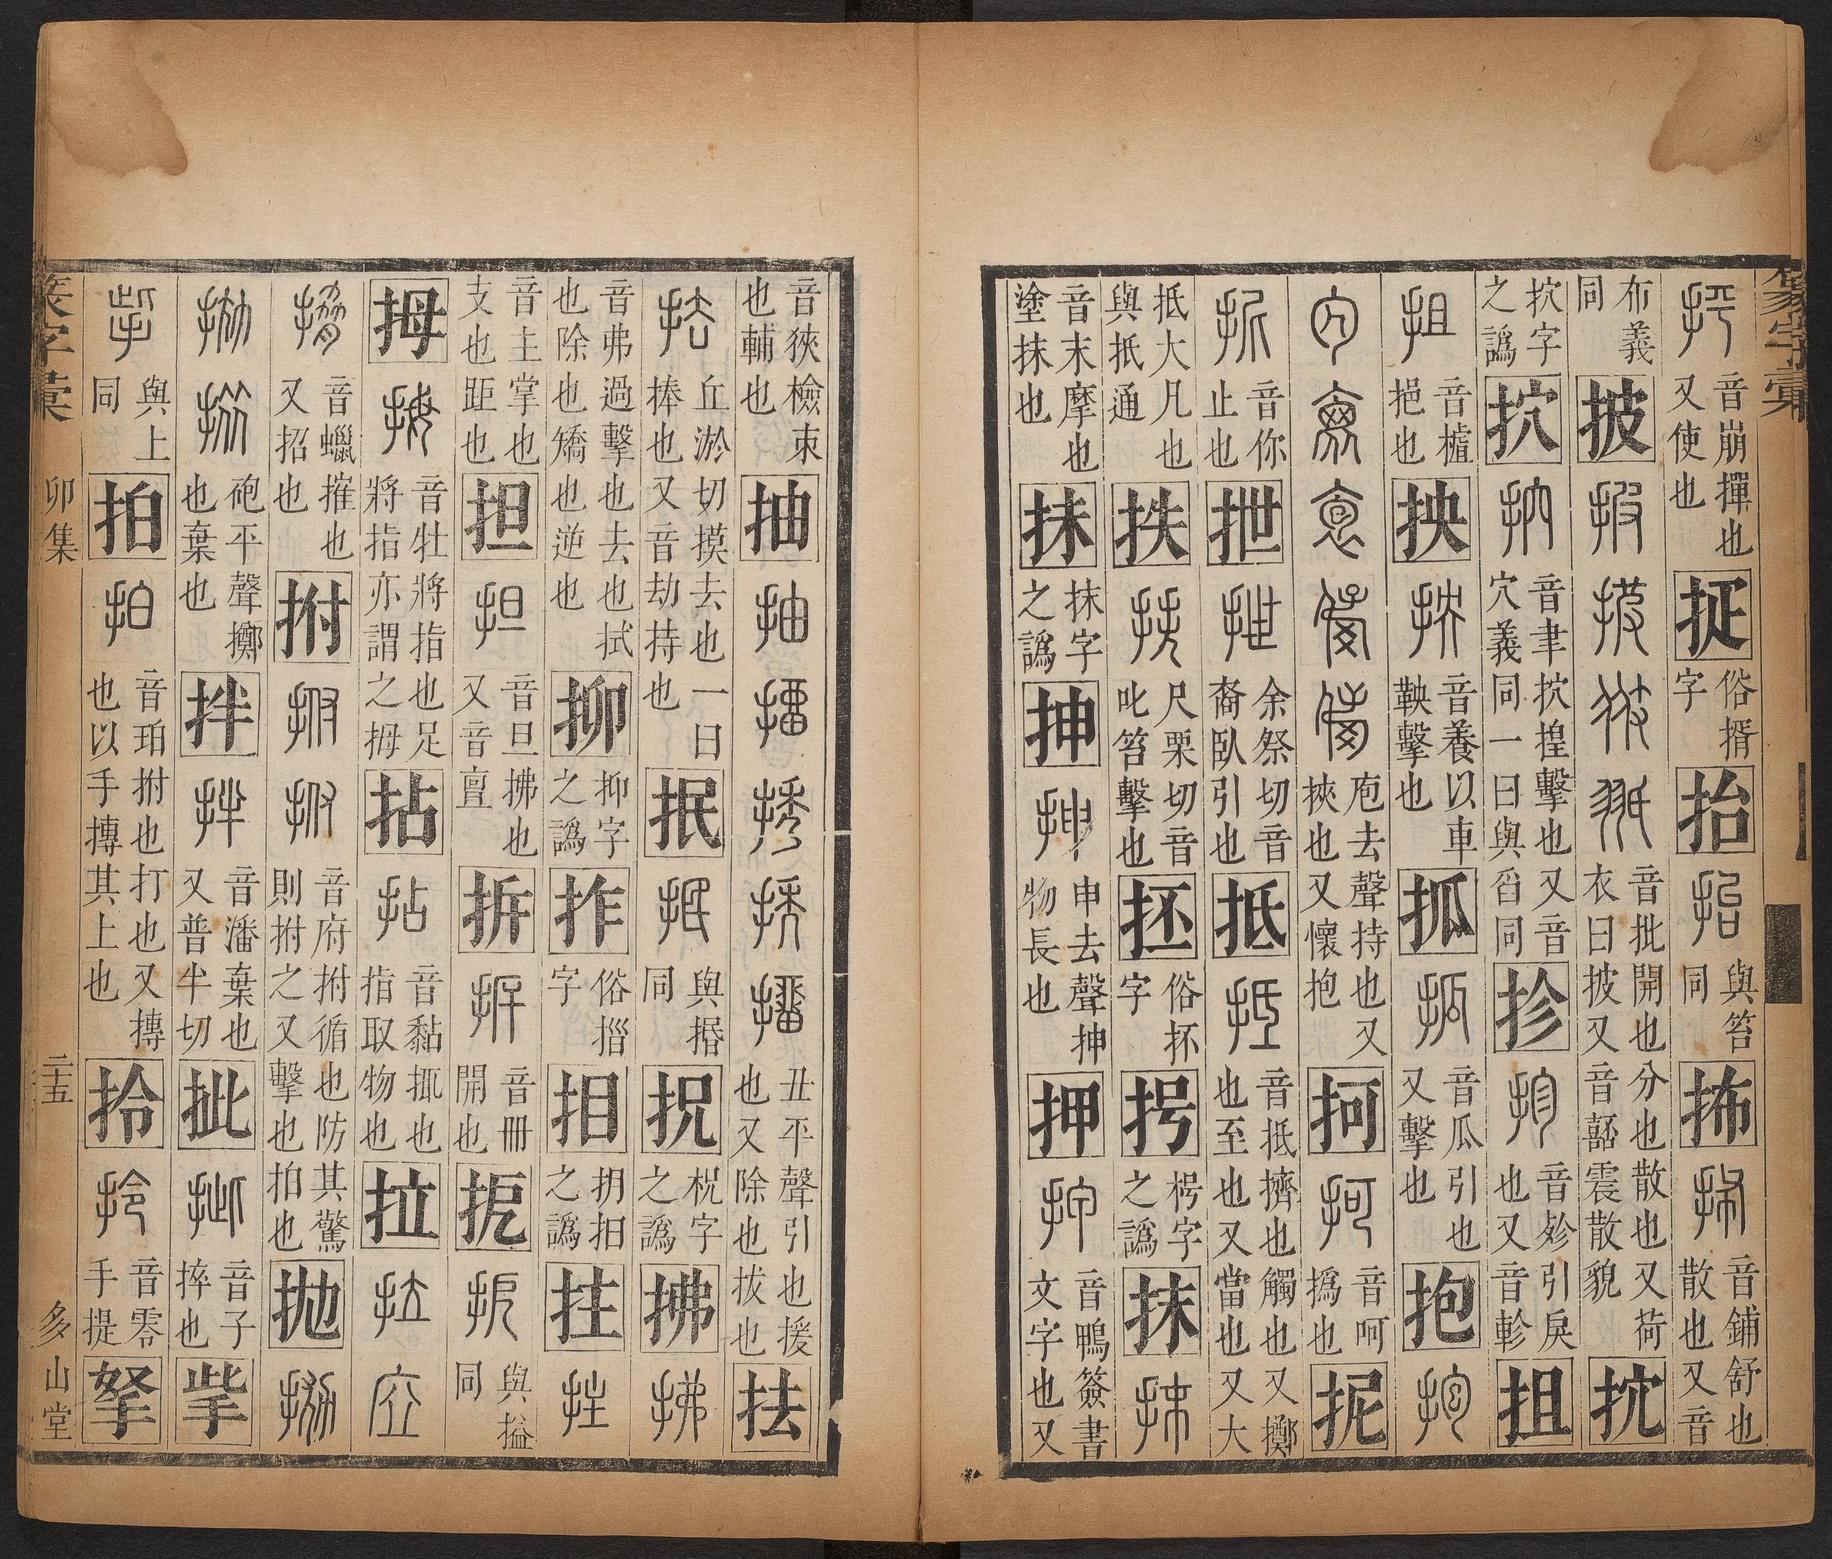 篆字彙
音崩撣也又使也 俗揟字 抬 與笞同 抪 音鋪舒也散也又音
布義同 披 音批開也分也散也又荷衣曰披又音嚭震散貌 抭
抭字之譌 音聿抭揘擊也又音穴義同一曰與㕯同 抮 音紾引戾也又音軫 抯
抯 音樝挹也 抰 音養以車鞅擊也 㧓 音瓜引也又擊也 抱
庖去聲持也又挾也又懷抱 抲 音呵撝也 抳
音你止也 抴 余祭切音裔臥引也 抵 音抵擠也觸也又擲也至也又當也又大
抵大凡也與抵通 抶 尺栗切音叱笞擊也 抷 俗抔字 枵字之譌 抹
音末摩也塗抹也 抺 抹字之譌 抻 申去聲抻物長也 押 音鴨簽書文字也又
音狹檢束也輔也 抽 丑平聲引也援也又除也拔也 抾
丘淤切摸去也一曰捧也又音劫持也 抿 與捪同 柷字之譌 拂
音弗過擊也去也拭也除也矯也逆也 抑字之譌 拃 俗字 抈抇之譌 拄
音主掌也支也距也 担 音旦拂也又音亶 拆 音冊開也 與搤同
拇 音牡將指也足將指亦謂之拇 拈 音黏也指取物也 拉
音蠟摧也又招也 拊 音府拊循也防其驚則拊之又擊也拍也 拋
砲平聲擲也棄也 拌 音潘棄也又普半切 㧗 音子捽也
與上同 拍 音珀拊也打也又摶也以手摶其上也 拎 音零手提 拏
篆字彙 卯集 二十五 多山堂